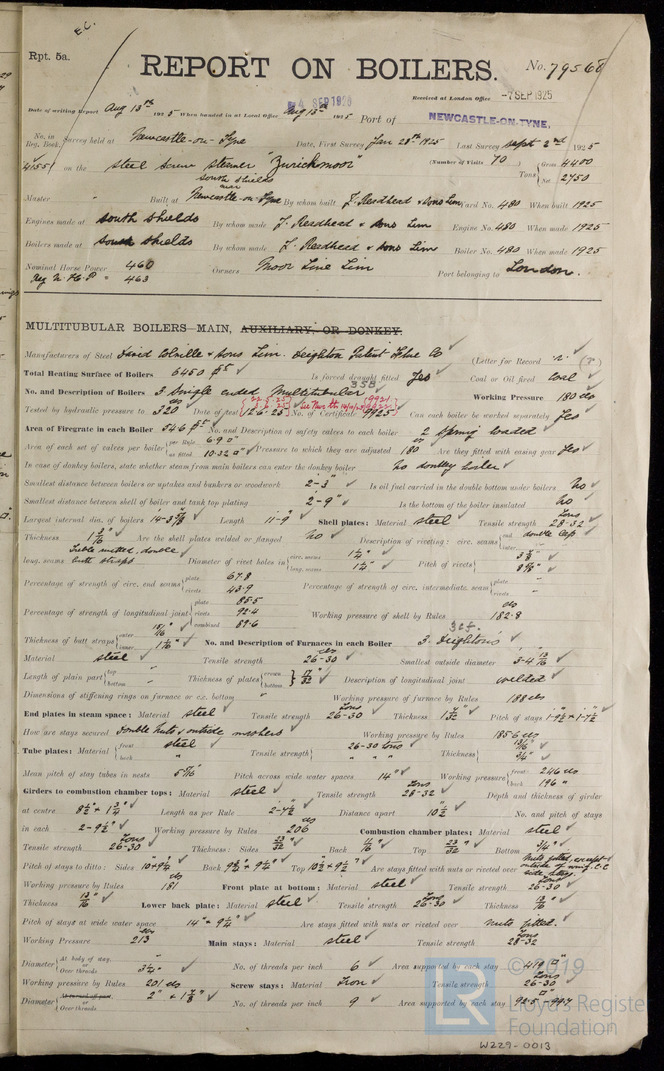 E.C.
Rpt. 5a.
REPORT ON BOILERS.
No. 79568
Received at London Office -7 SEP 1925
Date of writing Report Aug 13th 1925 When handed in at Local Office Aug 13th 1925 Port of NEWCASTLE-ON-TYNE,
No. in Reg. Book. Survey held at Newcastle-on-Tyne Date, First Survey Jan 28th 1925 Last Survey Sept 2nd 1925
on the steel screw steamer "Zurichmoor" (Number of Visits 70) Tons Gross 4400 Net 2750
South Shields near
Master Built at Newcastle-on-Tyne By whom built J. Readhead & Sons Lim Yard No. 480 When built 1925
Engines made at South Shields By whom made J. Readhead & Sons Lim Engine No. 480 When made 1925
Boilers made at South Shields By whom made J. Readhead & Sons Lim Boiler No. 480 When made 1925
Nominal Horse Power 460 Owners Moor Line Lim Port belonging to London.
Reg N.H.P = 463
MULTITUBULAR BOILERS—MAIN, AUXILIARY, OR DONKEY.
Manufacturers of Steel David Colville & Sons Lim. Leighton Patent Flue Co (Letter for Record
Total Heating Surface of Boilers 6450 Is forced draught fitted Yes Coal or Oil fired Coal
No. and Description of Boilers 3 Single ended Multitubular Working Pressure 180
Tested by hydraulic pressure to 320 Date of test 12.6.25 No. of Certificate 9925 Can each boiler be worked separately Yes
Area of Firegrate in each Boiler 54.6 No. and Description of safety valves to each boiler 2 Spring loaded
Area of each set of valves per boiler per Rule 6.9 as fitted 10.32 Pressure to which they are adjusted 180 Are they fitted with easing gear Yes
In case of donkey boilers, state whether steam from main boilers can enter the donkey boiler no donkey boiler
Smallest distance between boilers or uptakes and bunkers or woodwork 2-3" Is oil fuel carried in the double bottom under boilers No
Smallest distance between shell of boiler and tank top plating 2-9" Is the bottom of the boiler insulated No
Largest internal dia. of boilers Length 11-9" Shell plates: Material steel Tensile strength 28-32 Tons
Thickness 1 3/16 Are the shell plates welded or flanged No Description of riveting: circ. seams end double lap inter.
long. seams treble riveted, double butt straps Diameter of rivet holes in circ. seams 1 1/4" long. seams 1 1/4" Pitch of rivets
Percentage of strength of circ. end seams plate 67.8 rivets 43.9 Percentage of strength of circ. intermediate seam plate rivets
Percentage of strength of longitudinal joint plate 85.5 rivets 92.4 combined 89.6 Working pressure of shell by Rules 182.8
Thickness of butt straps outer 15/16 inner 1 1/16 No. and Description of Furnaces in each Boiler 3 Deightons
Material steel Tensile strength 26-30 Smallest outside diameter 3-4 13/16
Length of plain part top bottom Thickness of plates crown bottom 17/32 Description of longitudinal joint welded
Dimensions of stiffening rings on furnace or c.c. bottom Working pressure of furnace by Rules 188
End plates in steam space: Material steel Tensile strength 26-30 Tons Thickness 1 1/32 Pitch of stays
How are stays secured double nuts & outside washers Working pressure by Rules 185.6
Tube plates: Material front steel back " Tensile strength 26-30 Tons Thickness 13/16 3/4"
Mean pitch of stay tubes in nests Pitch across wide water spaces 14" Working pressure front 246 back 196
Girders to combustion chamber tops: Material steel Tensile strength 28-32 Tons Depth and thickness of girder
at centre 8 1/2" × 1 3/4" Length as per Rule 2-4 1/2" Distance apart 10 1/2" No. and pitch of stays
in each 2-9 1/2" Working pressure by Rules 206 Combustion chamber plates: Material steel
Tensile strength 26-30 Tons Thickness: Sides 23/32 Back Top 23/32 Bottom 3/4"
Pitch of stays to ditto: Sides 10×9 1/2 Back 9 1/2 × 9 1/4 Top 10 1/2 × 9 1/2 Are stays fitted with nuts or riveted over Nuts fitted, except outside of wing C.C side plates
Working pressure by Rules 181 Front plate at bottom: Material steel Tensile strength 26-30 Tons
Thickness 13/16 Lower back plate: Material steel Tensile strength 26-30 Tons Thickness 13/16
Pitch of stays at wide water space 14" × 9 1/4 Are stays fitted with nuts or riveted over Nuts fitted.
Working Pressure 213 Main stays: Material steel Tensile strength 28-32 Tons
Diameter At body of stay, or Over threads 3 1/4" No. of threads per inch 6 Area supported by each stay 419
Working pressure by Rules 201 Screw stays: Material Iron Tensile strength 26-30 Tons
Diameter At turned off part, or Over threads 2" & 1 7/8" No. of threads per inch 9 Area supported by each stay 92.5 - 99.7
© 2019
LR
Lloyd's Register Foundation
W229-0013